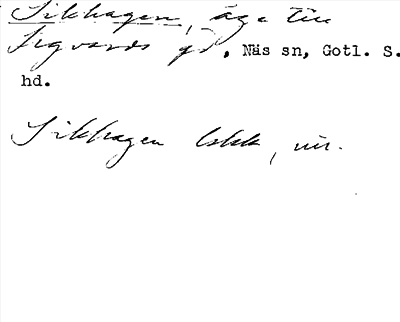 Sikhagen, äga till
Sigvards gd, Näs sn, Gotl. S.
hd.
Sikhagen